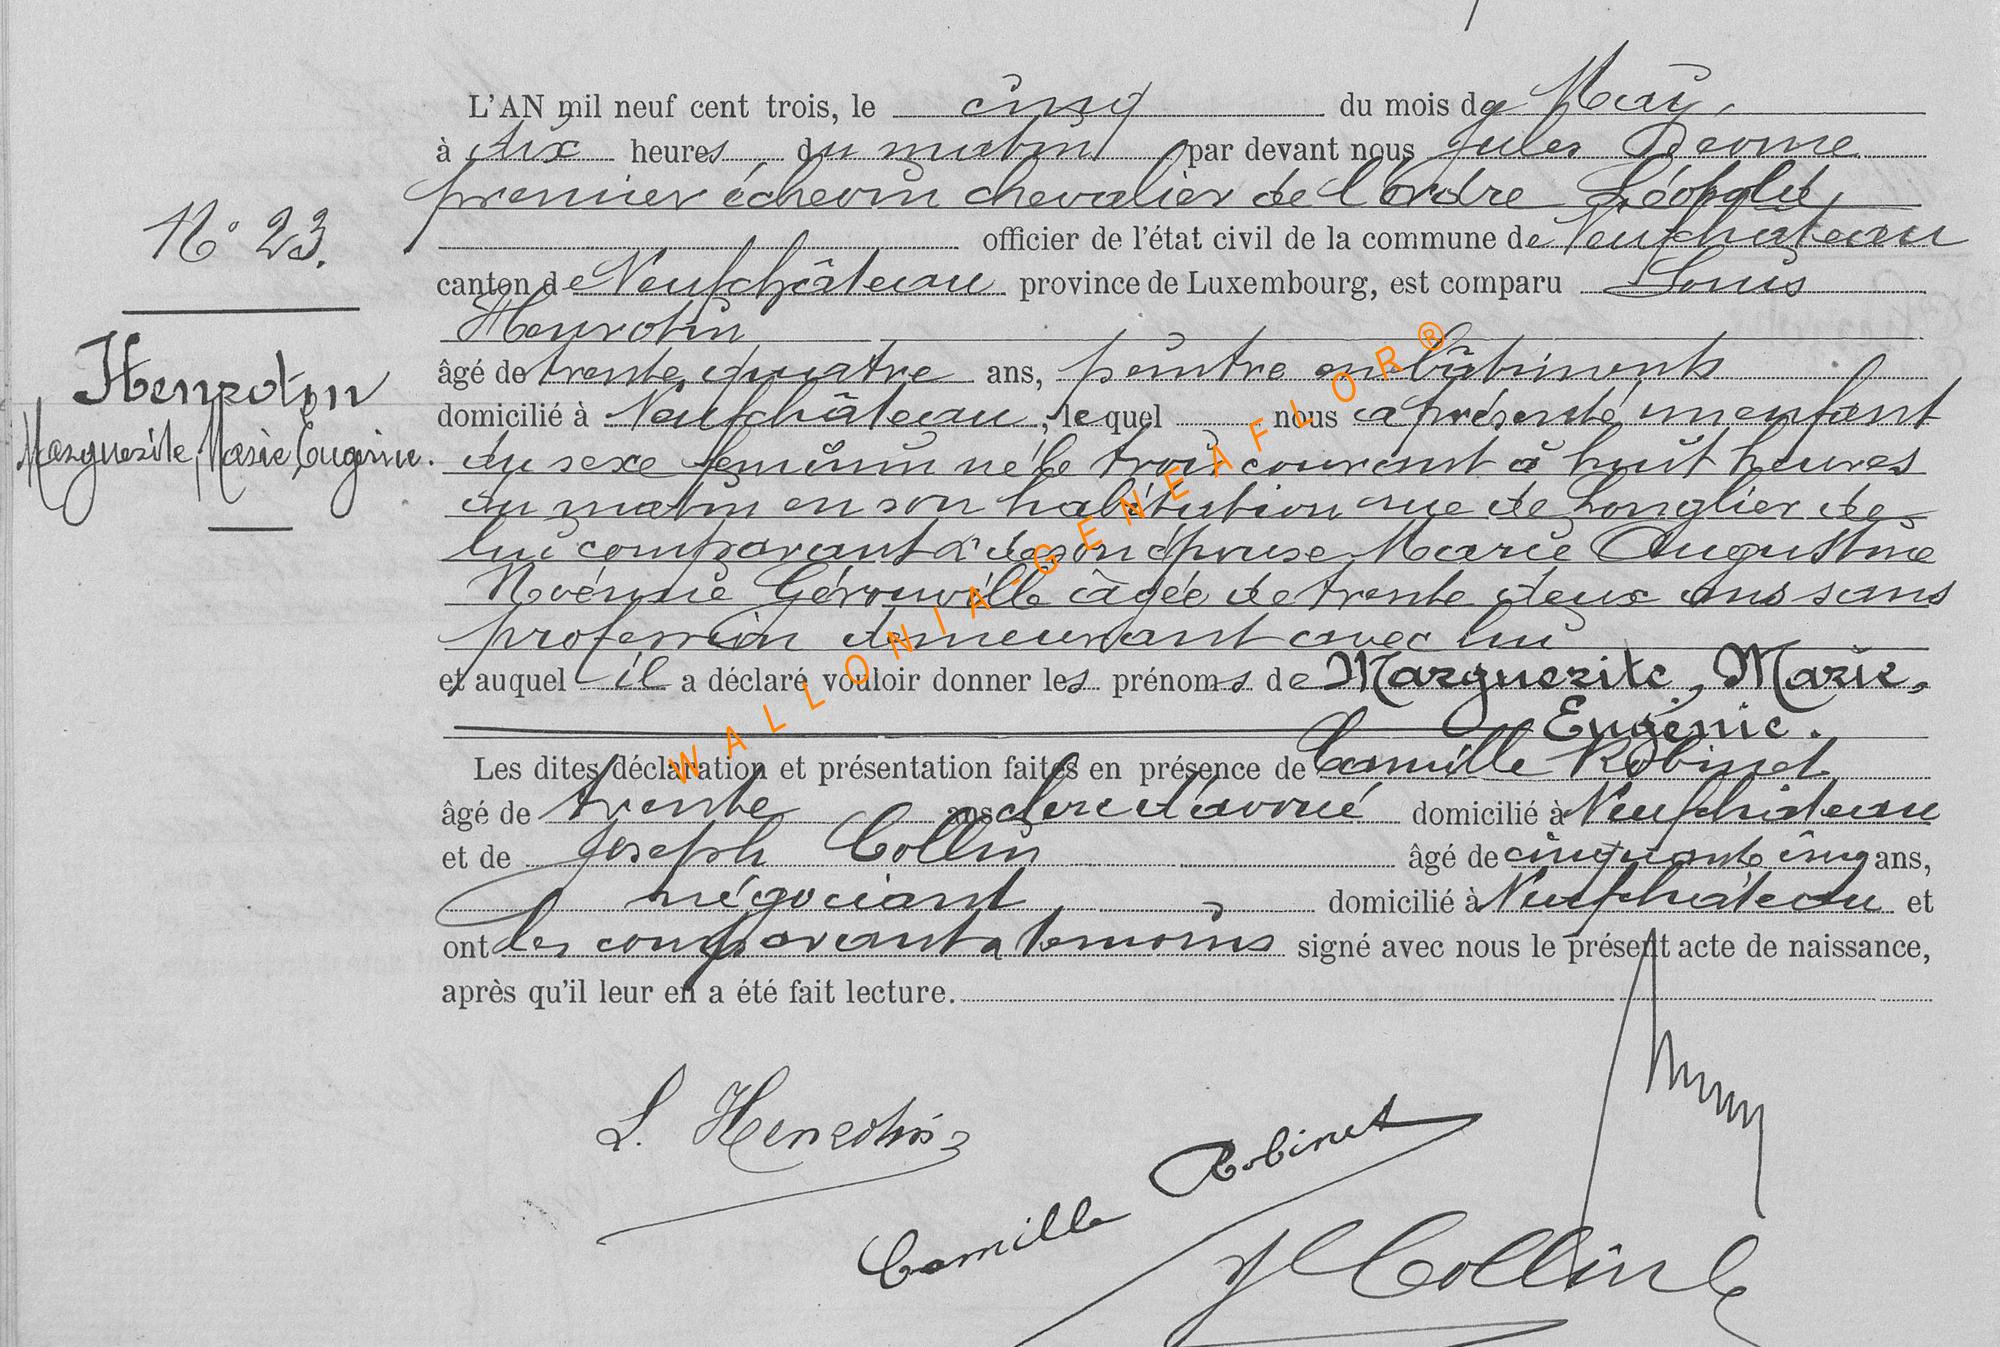 L'AN mil neuf cent trois, le cinq du mois de May,
à dix heures du matin par devant nous Jules Deome
premier échevin chevalier de l'ordre Léopold,
N° 23.
officier de l'état civil de la commune de Neufchâteau
canton de Neufchâteau province de Luxembourg, est comparu Louis
Henrotin
âgé de trente quatre ans, peintre en bâtiments
Henrotin
domicilié à Neufchâteau, lequel nous a présenté un enfant
Marguerite, Marie Eugénie.
du sexe féminin né le trois courant à huit heures
du matin en son habitation rue de Longlier de
lui comparant & de son épouse Marie Augustine
Noémie Gérouville âgée de trente deux ans sans
profession demeurant avec lui
et auquel il a déclaré vouloir donner les prénoms de Marguerite, Marie,
Eugénie.
Les dites déclaration et présentation faites en présence de Camille Robinet
âgé de trente ans clerc d'avoué domicilié à Neufchâteau
et de Joseph Collin âgé de cinquante cinq ans,
négociant domicilié à Neufchâteau et
ont les comparant & témoins signé avec nous le présent acte de naissance,
après qu'il leur en a été fait lecture.
WALLONIA-GENEAFLOR®
L. Henrotin
Camille Robinet
J Collin